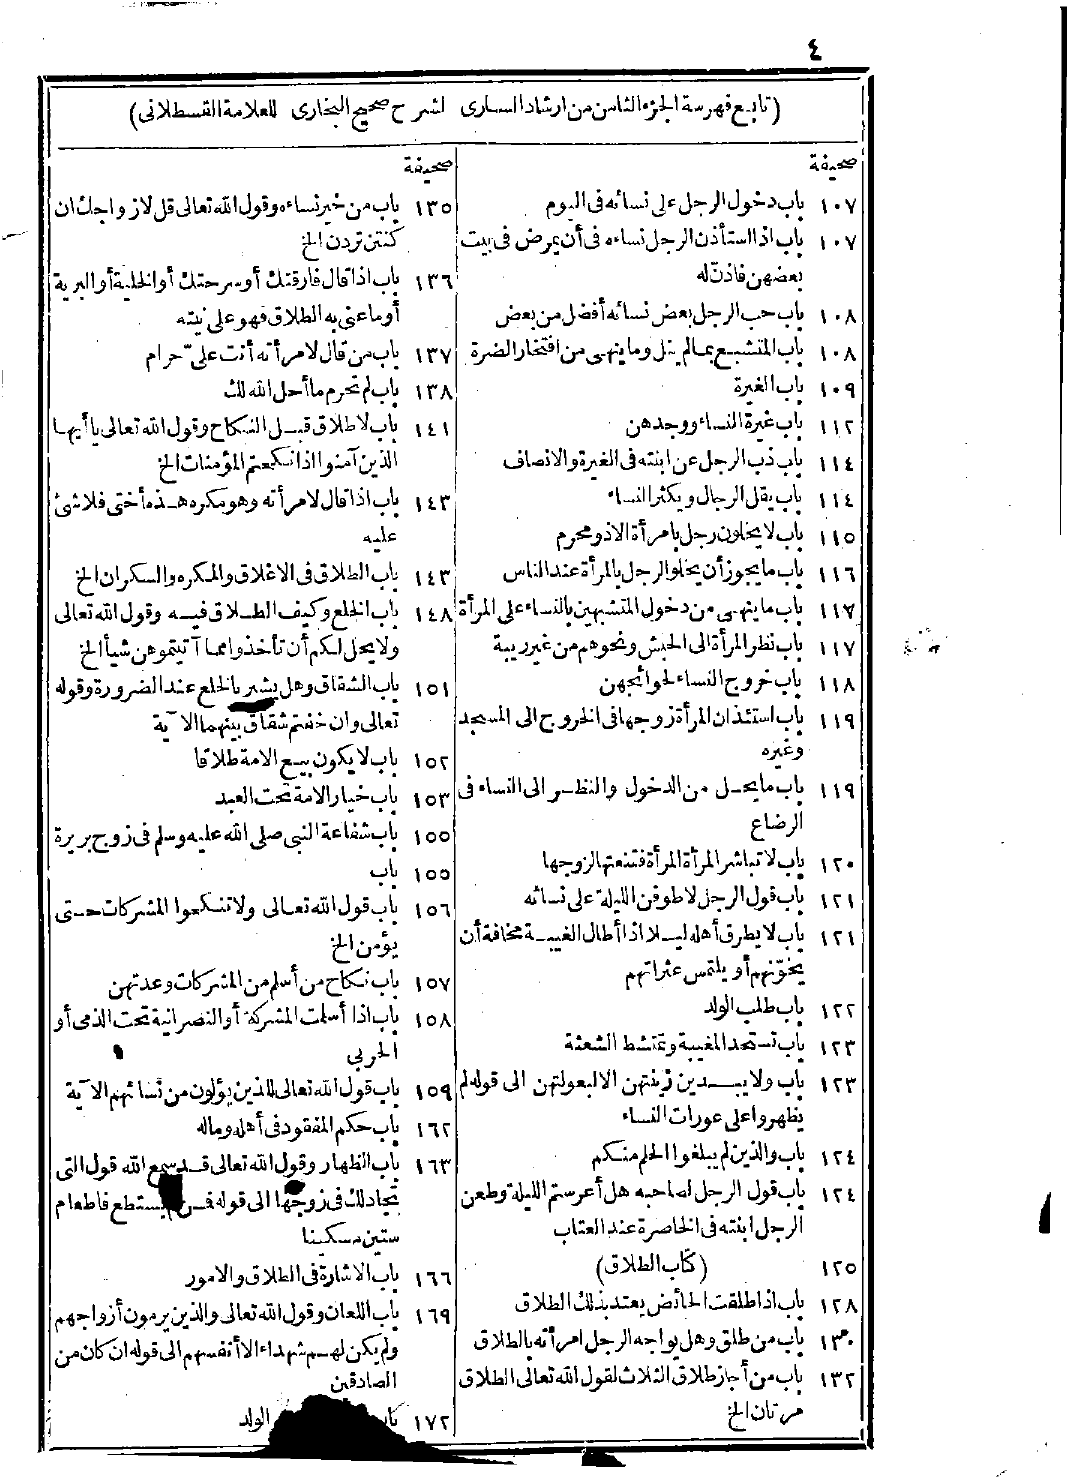 ٤
(تابع فهرسة الجزء الثامن من ارشاد السارى لشرح صحيح البخارى للعلامة القسطلانى)
صحيفة
١٠٧ باب دخول الرجل على نسائه فى اليوم
١٠٧ باب اذا استأذن الرجل نساءه فى أن يمرض فى بيت
بعضهن فاذنّ له
١٠٨ باب حب الرجل بعض نسائه أفضل من بعض
١٠٨ باب المتشبع بمالم ينل وما ينهى من افتخار الضرة
١٠٩ باب الغيرة
١١٢ باب غيرة النساء ووجدهن
١١٤ باب ذب الرجل عن ابنته فى الغيرة والانصاف
١١٤ باب يقل الرجال ويكثر النساء
١١٥ باب لا يخلون رجل بامرأة الاذو محرم
١١٦ باب ما يجوز أن يخلو الرجل بالمرأة عند الناس
١١٧ باب ما ينهى من دخول المتشبهين بالنساء على المرأة
١١٧ باب نظر المرأة الى الحبش ونحوهم من غير ريبة
١١٨ باب خروج النساء لحوائجهن
١١٩ باب استئذان المرأة زوجها فى الخروج الى المسجد
وغيره
١١٩ باب ما يحل من الدخول والنظر الى النساء فى
الرضاع
١٢٠ باب لا تباشر المرأة المرأة فتنعتها لزوجها
١٢١ باب قول الرجل لاطوفن الليلة على نسائه
١٢١ باب لا يطرق أهله ليلا اذا أطال الغيبة مخافة أن
يخوّنهم أو يلتمس عثراتهم
١٢٢ باب طلب الولد
١٢٣ باب تستحد المغيبة وتمتشط الشعثة
١٢٣ باب ولا يبدين زينتهن الا لبعولتهن الى قوله لم
يظهروا على عورات النساء
١٢٤ باب والذين لم يبلغوا الحلم منكم
١٢٤ باب قول الرجل لصاحبه هل أعرستم الليلة وطعن
الرجل ابنته فى الخاصرة عند العتاب
١٢٥ (كتاب الطلاق)
١٢٨ باب اذا طلقت الحائض يعتد بذلك الطلاق
١٣٠ باب من طلق وهل يواجه الرجل امرأته بالطلاق
١٣٢ باب من أجاز طلاق الثلاث لقول الله تعالى الطلاق
مرتان الخ
صحيفة
١٣٥ باب من خير نساءه وقول الله تعالى قل لازواجك ان
كنتن تردن الخ
١٣٦ باب اذا قال فارقتك أو سرحتك أو الخلية أو البرية
أو ما عنى به الطلاق فهو على نيته
١٣٧ باب من قال لامرأته أنت علىّ حرام
١٣٨ باب لم تحرم ما أحل الله لك
١٤١ باب لا طلاق قبل النكاح وقول الله تعالى يا أيها
الذين آمنوا اذا نكحتم المؤمنات الخ
١٤٣ باب اذا قال لامرأته وهو مكره هذه أختى فلا شئ
عليه
١٤٣ باب الطلاق فى الاغلاق والمكره والسكران الخ
١٤٨ باب الخلع وكيف الطلاق فيه وقول الله تعالى
ولا يحل لكم أن تأخذوا مما آتيتموهن شيأ الخ
١٥١ باب الشقاق وهل يشير بالخلع عند الضرورة وقوله
تعالى وان خفتم شقاق بينهما الآية
١٥٢ باب لا يكون بيع الامة طلاقا
١٥٣ باب خيار الامة تحت العبد
١٥٥ باب شفاعة النبى صلى الله عليه وسلم فى زوج بريرة
١٥٥ باب
١٥٦ باب قول الله تعالى ولا تنكحوا المشركات حتى
يؤمن الخ
١٥٧ باب نكاح من أسلم من المشركات وعدتهن
١٥٨ باب اذا أسلمت المشركة أو النصرانية تحت الذمى أو
الحربى
١٥٩ باب قول الله تعالى للذين يؤلون من نسائهم الآية
١٦٢ باب حكم المفقود فى أهله وماله
١٦٣ باب الظهار وقول الله تعالى قد سمع الله قول التى
تجادلك فى زوجها الى قوله فمن لم يستطع فاطعام
ستين مسكينا
١٦٦ باب الاشارة فى الطلاق والامور
١٦٩ باب اللعان وقول الله تعالى والذين يرمون أزواجهم
ولم يكن لهم شهداء الا أنفسهم الى قوله ان كان من
الصادقين
١٧٢ باب الولد